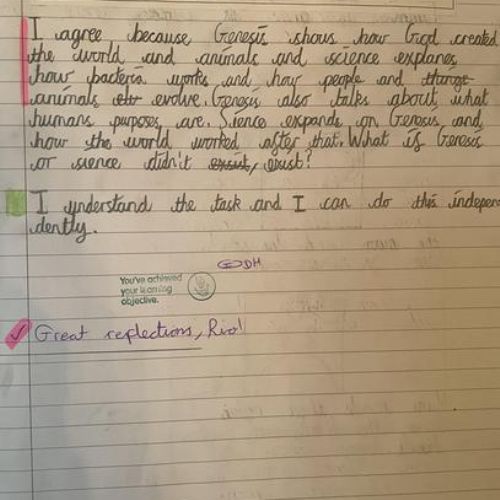 I agree because Genesis shows how God created
the world and animals and science explanes
how bacteria works and how people and things
animals evolve. Genesis also talks about what
humans purposes are. Sience expands on Genesis and
how the world worked after that. What if Genesis
or sience didn't exsist, exist?
I understand the task and I can do this indepen
dently.
DH
You've achieved
your learning
objective.
Great reflections, Rio!